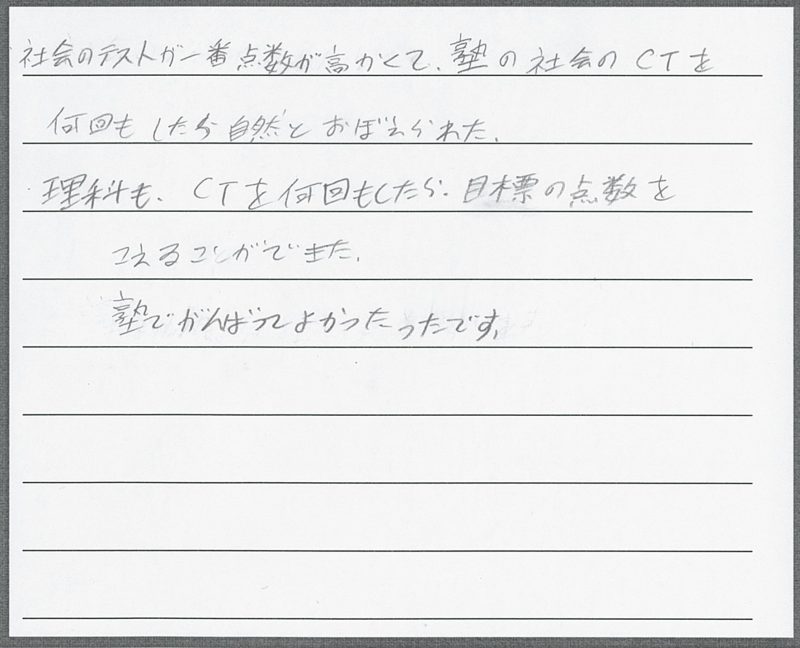 社会のテストが一番点数が高かくて、塾の社会のCTを
何回もしたら自然とおぼえられた。
理科も、CTを何回もしたら、目標の点数を
こえることができた。
塾でがんばってよかったったです。